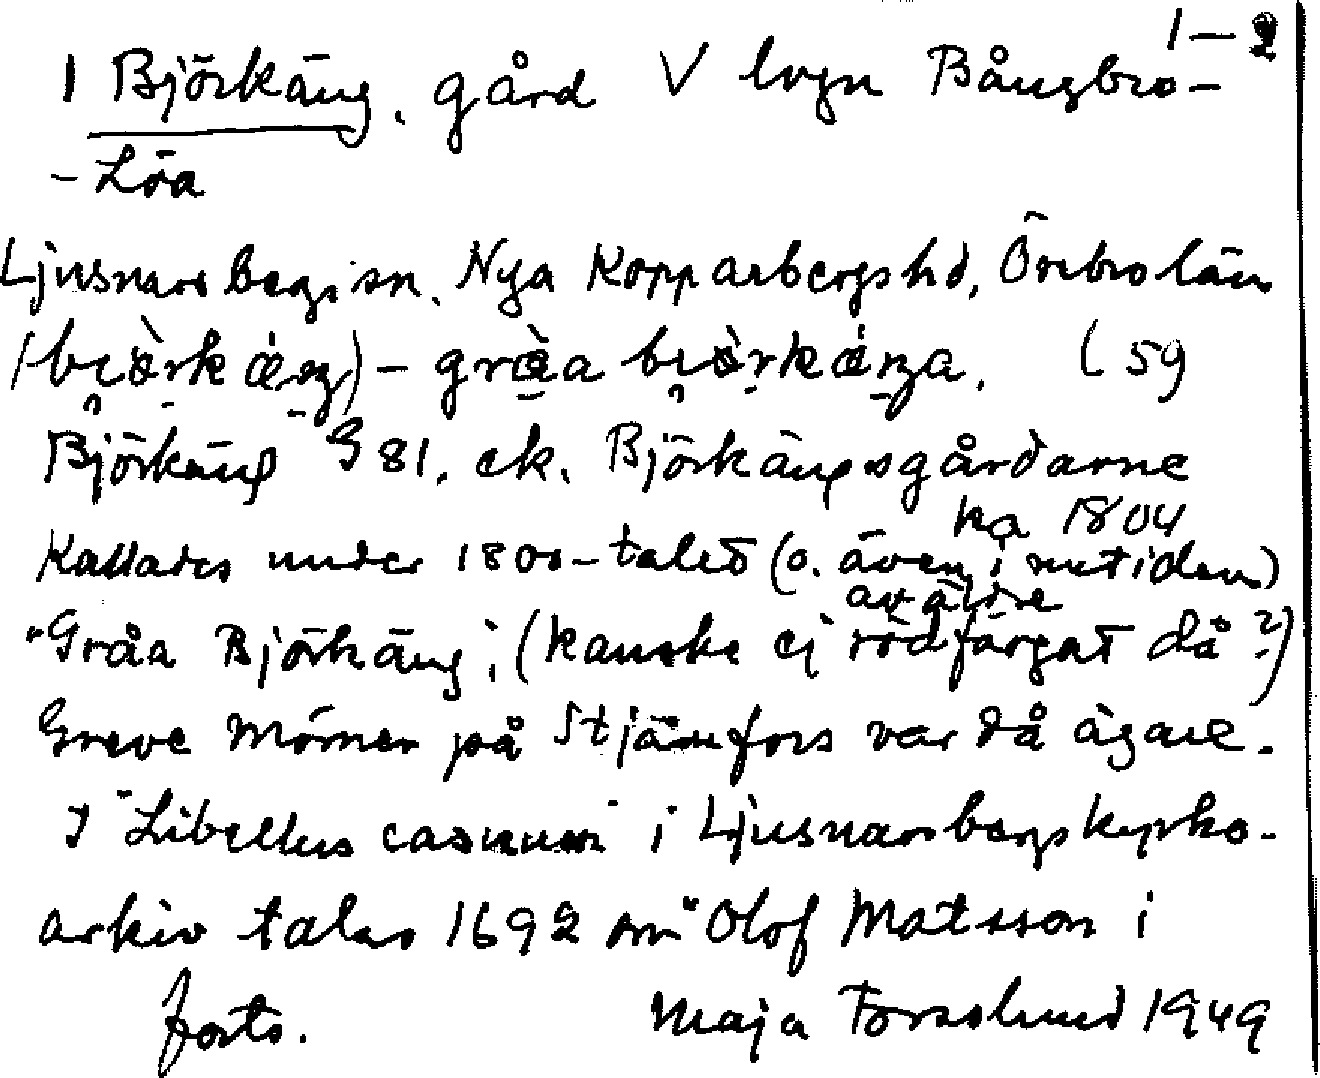 1-2
1 Björkäng, gård V lvgn Bångbro-
-Löa
Ljusnarsbergs sn. Nya Kopparbergs hd, Örebro län
(59
Björkäng G 81, ek. Björkängsgårdarne
ka 1804
Kallades under 1800-talet (o. även i nutiden)
av äldre
"Gråa Björkäng", (kanske ej rödfärgat då?)
Greve Mörner på Stjärnfors var då ägare.
I "Libellus casuum" i Ljusnarsbergs kyrko-
arkiv talas 1692 om "Olof Matsson i
forts. Maja Forsslund 1949